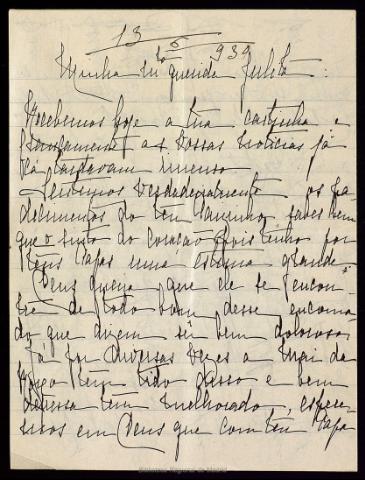 13/6/939
Minha mt querida Julita:
Recebemos hoje a tua cartinha e
francamente as vossas noticias já
cá tardavam imenso
Sentimos verdadeiramente os pa
decimentos do teu Paizinho, sabes bem
que o sinto do coração pois tenho por
teus Papás uma estima grande.
Deus queira que ele se encon
tre de todo bom desse encomo
do que dizem ser bem doloroso.
Já por diversas vezes a Mãi da
tem tido disso e bem
depressa tem melhorado, espere
mos em Deus que com teu Papá